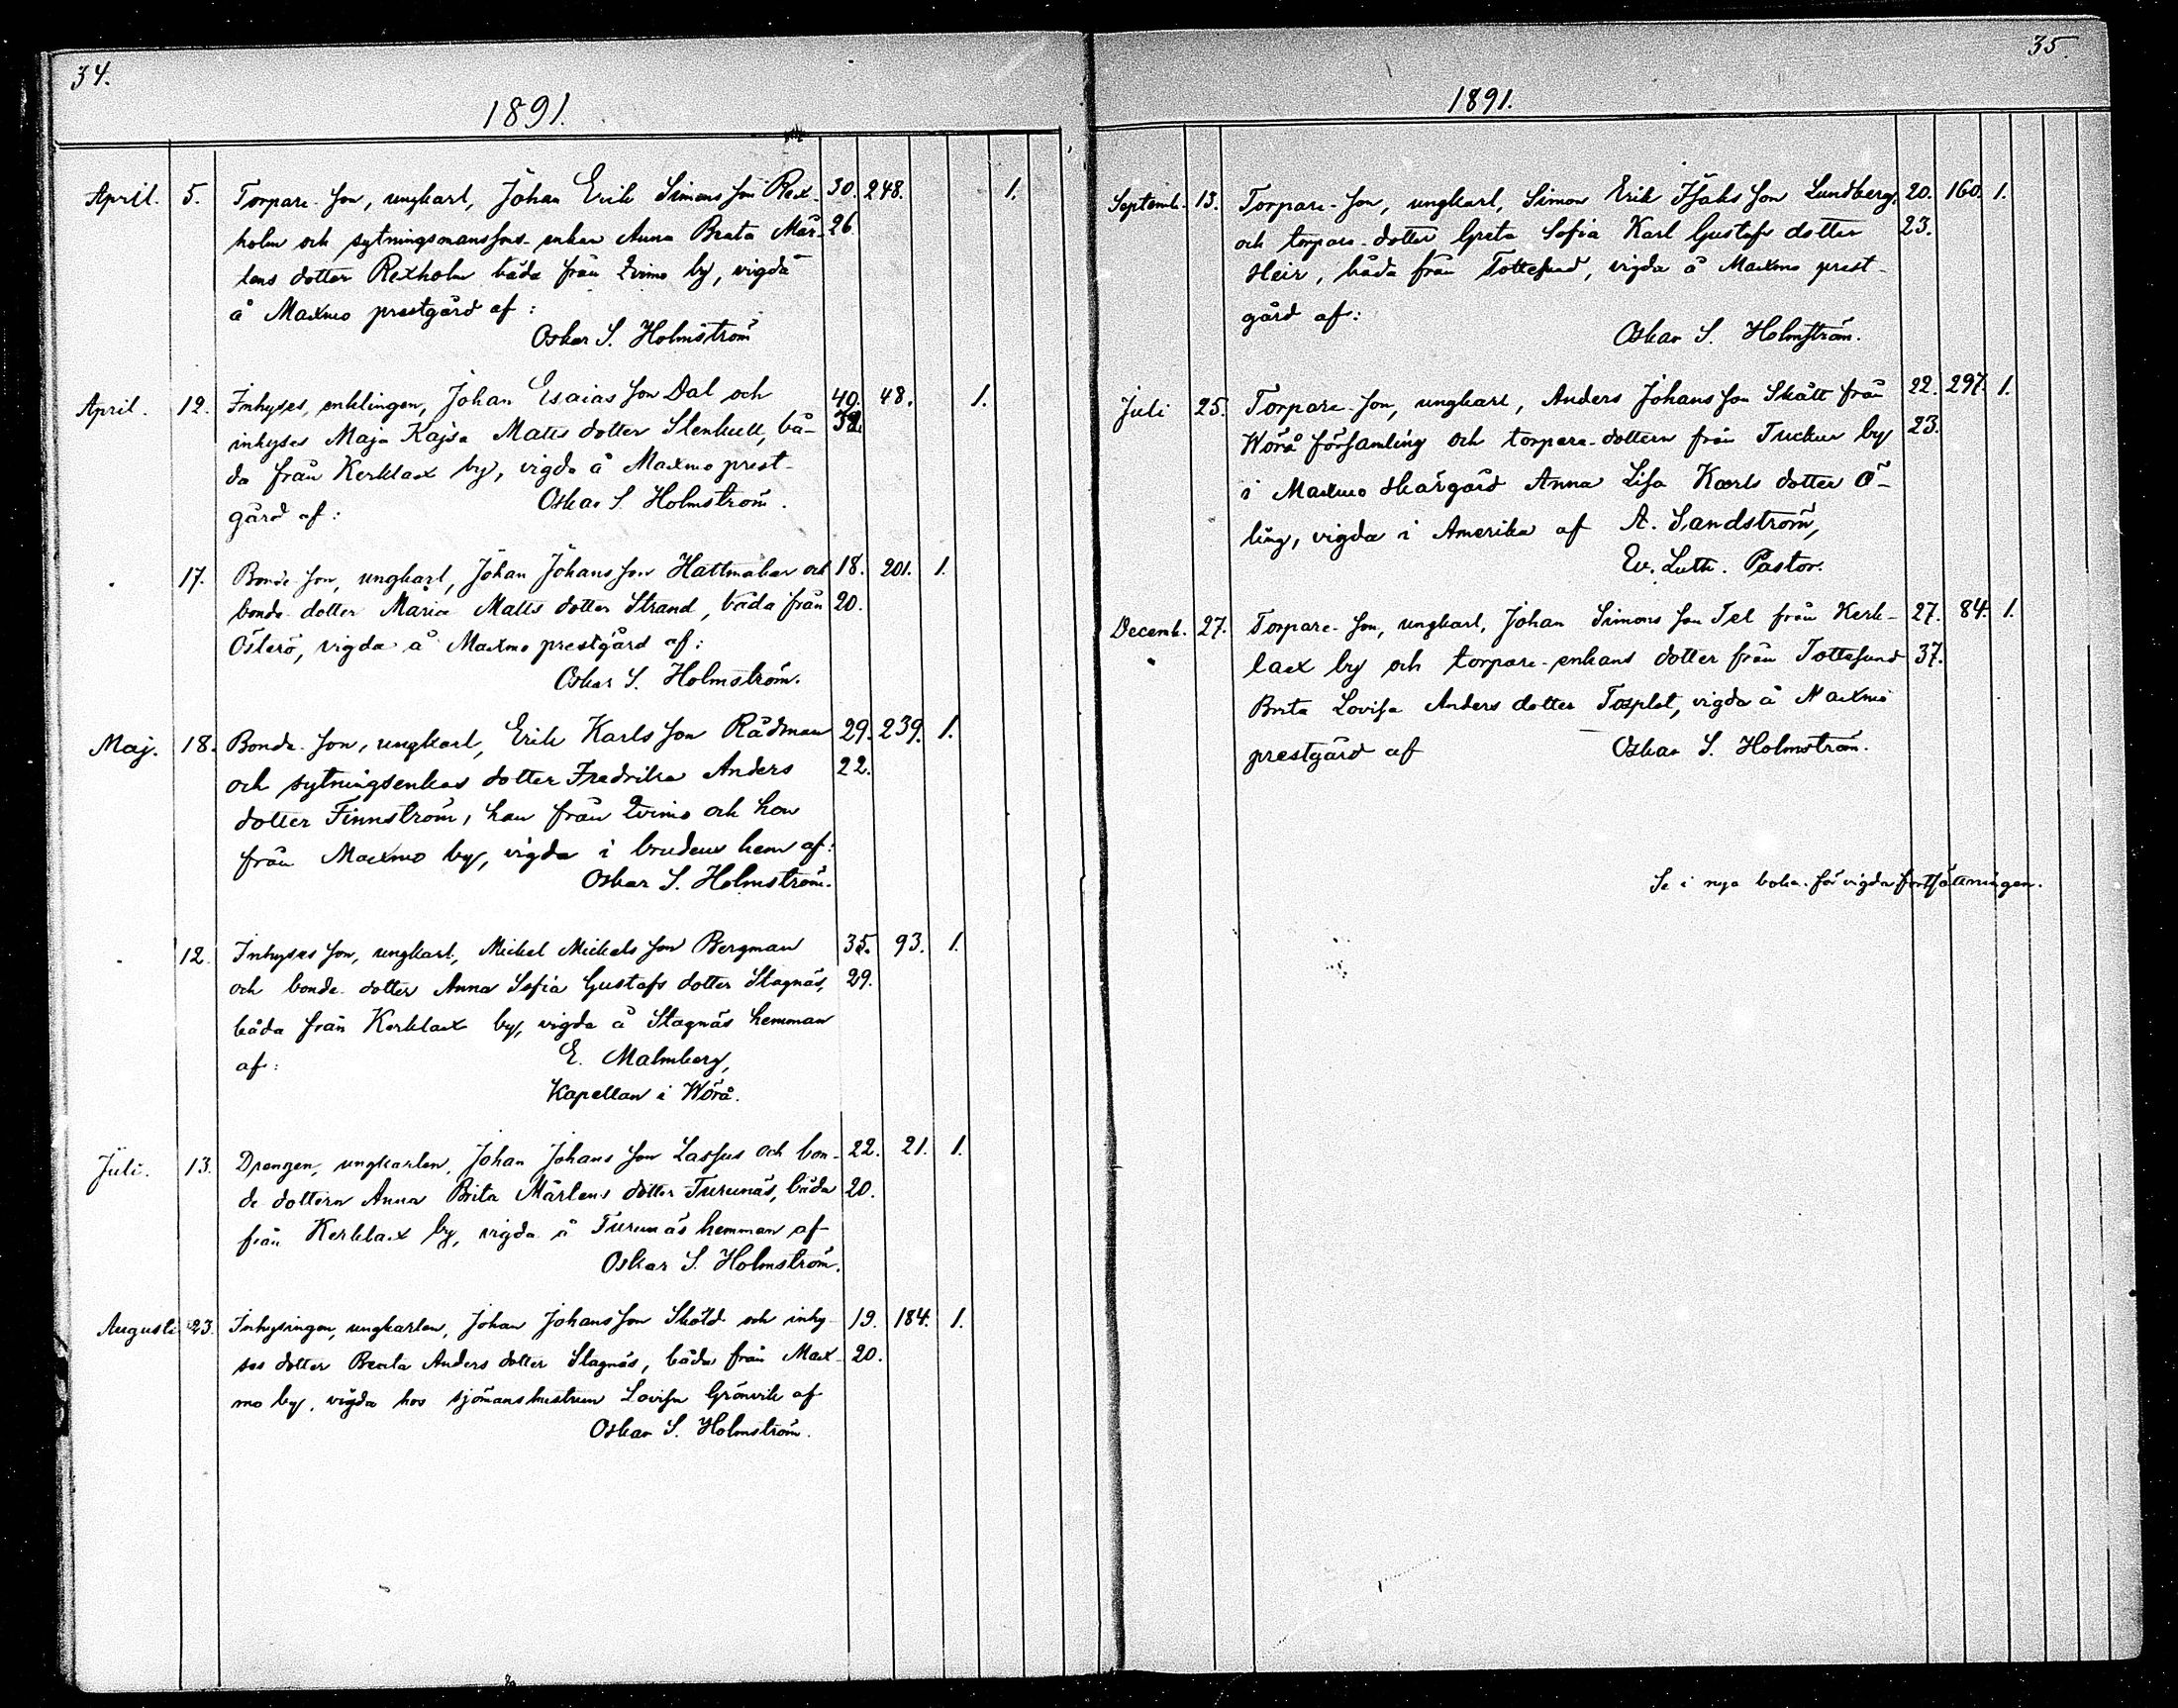 34.
1891.
April. 5. Torpare-son, ungkarl, Johan Erik Simons son Rex- 30. 248. 1.
holm och sytningsmanssons-enkan Anna Beata Mår- 26.
tens dotter Rexholm båda från Qvimo by, vigda
å Maxmo prestgård af:
Oskar S. Holmström
April. 12. Inhyses, enklingen, Johan Esaias son Dal och 40. 48. 1.
inhyses Maja Kajsa Matts dotter Stenkull, bå-
da från Kerklax by, vigda å Maxmo prest-
gård af: Oskar S. Holmström.
17. Bonde-son, ungkarl, Johan Johans son Hattmakar och 18. 201. 1.
bonde-dotter Maria Matts dotter Strand, båda från 20.
Österö, vigda å Maxmo prestgård af:
Oskar S. Holmström.
Maj. 18. Bonde-son, ungkarl, Erik Karls son Rådman 29. 239. 1.
och sytningsenkas dotter Fredrika Anders 22.
dotter Finnström, han från Qvimo och hon
från Maxmo by, vigda i brudens hem af:
Oskar S. Holmström.
12. Inhyses son, ungkarl, Mickel Mickels son Bergman 35. 93. 1.
och bonde-dotter Anna Sofia Gustafs dotter Stagnäs, 29.
båda från Kerklax by, vigda å Stagnäs hemman
af: E. Malmberg,
Kapellan i Wörå.
Juli. 13. Drengen, ungkarlen, Johan Johans son Lassus och bon- 22. 21. 1.
de dottern Anna Brita Mårtens dotter Turunäs, båda 20.
från Kerklax by, vigda å Turunäs hemman af
Oskar S. Holmström.
Augusti 23. Inhysingen, ungkarlen, Johan Johans son Sköld och inhy- 19. 184. 1.
ses dotter Beata Anders dotter Stagnäs, båda från Max- 20.
mo by, vigda hos sjömanshustrun Lovisa Grönvik af
Oskar S. Holmström.
35.
1891.
Septemb. 13. Torpare-son, ungkarl, Simon Erik Isaks son Lundberg, 20. 160. 1.
och torpare-dotter Greta Sofia Karl Gustafs dotter 23.
Heir, båda från Tottesund, vigda å Maxmo prest-
gård af:
Oskar S. Holmström.
Juli 25. Torpare-son, ungkarl, Anders Johans son Skått från 22. 297. 1.
Wörå församling och torpare-dottern från Tuckur by 23.
i Maxmo skärgård Anna Lisa Karls dotter Ö-
ling, vigda i Amerika af A. Sandström,
Ev. Luth. Pastor.
Decemb. 27. Torpare-son, ungkarl, Johan Simons son Tel från Kerk- 27. 84. 1.
lax by och torpare-enkans dotter från Tottesund 37.
Brita Lovisa Anders dotter Torplot, vigda å Maxmo
prestgård af Oskar S. Holmström.
Se i nya boken för vigda fortsättningen.